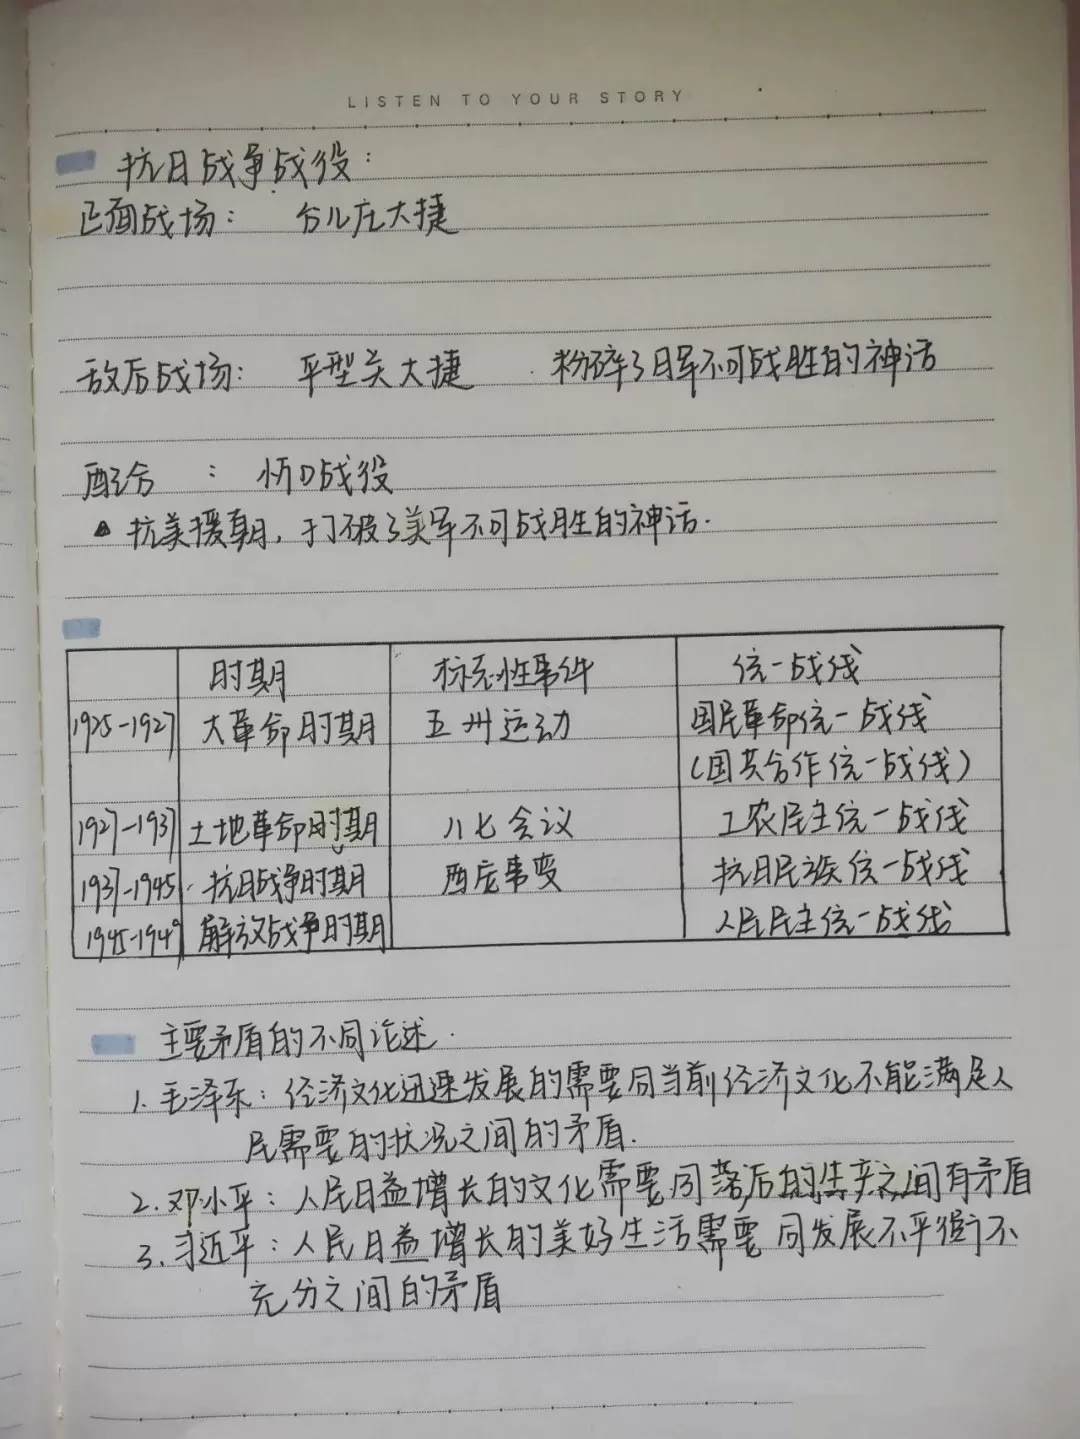 LISTEN TO YOUR STORY
抗日战争战役：
正面战场： 台儿庄大捷
敌后战场： 平型关大捷 粉碎了日军不可战胜的神话
配合 ： 忻口战役
▲ 抗美援朝，打破了美军不可战胜的神话.
时期 标志性事件 统一战线
1925-1927 大革命时期 五卅运动 国民革命统一战线
（国共合作统一战线）
1927-1937 土地革命时期 八七会议 工农民主统一战线
1937-1945 抗日战争时期 西安事变 抗日民族统一战线
1945-1949 解放战争时期 人民民主统一战线
主要矛盾的不同论述.
1. 毛泽东：经济文化迅速发展的需要同当前经济文化不能满足人
民需要的状况之间的矛盾.
2. 邓小平：人民日益增长的文化需要同落后的生产之间有矛盾
3. 习近平：人民日益增长的美好生活需要同发展不平衡不
充分之间的矛盾